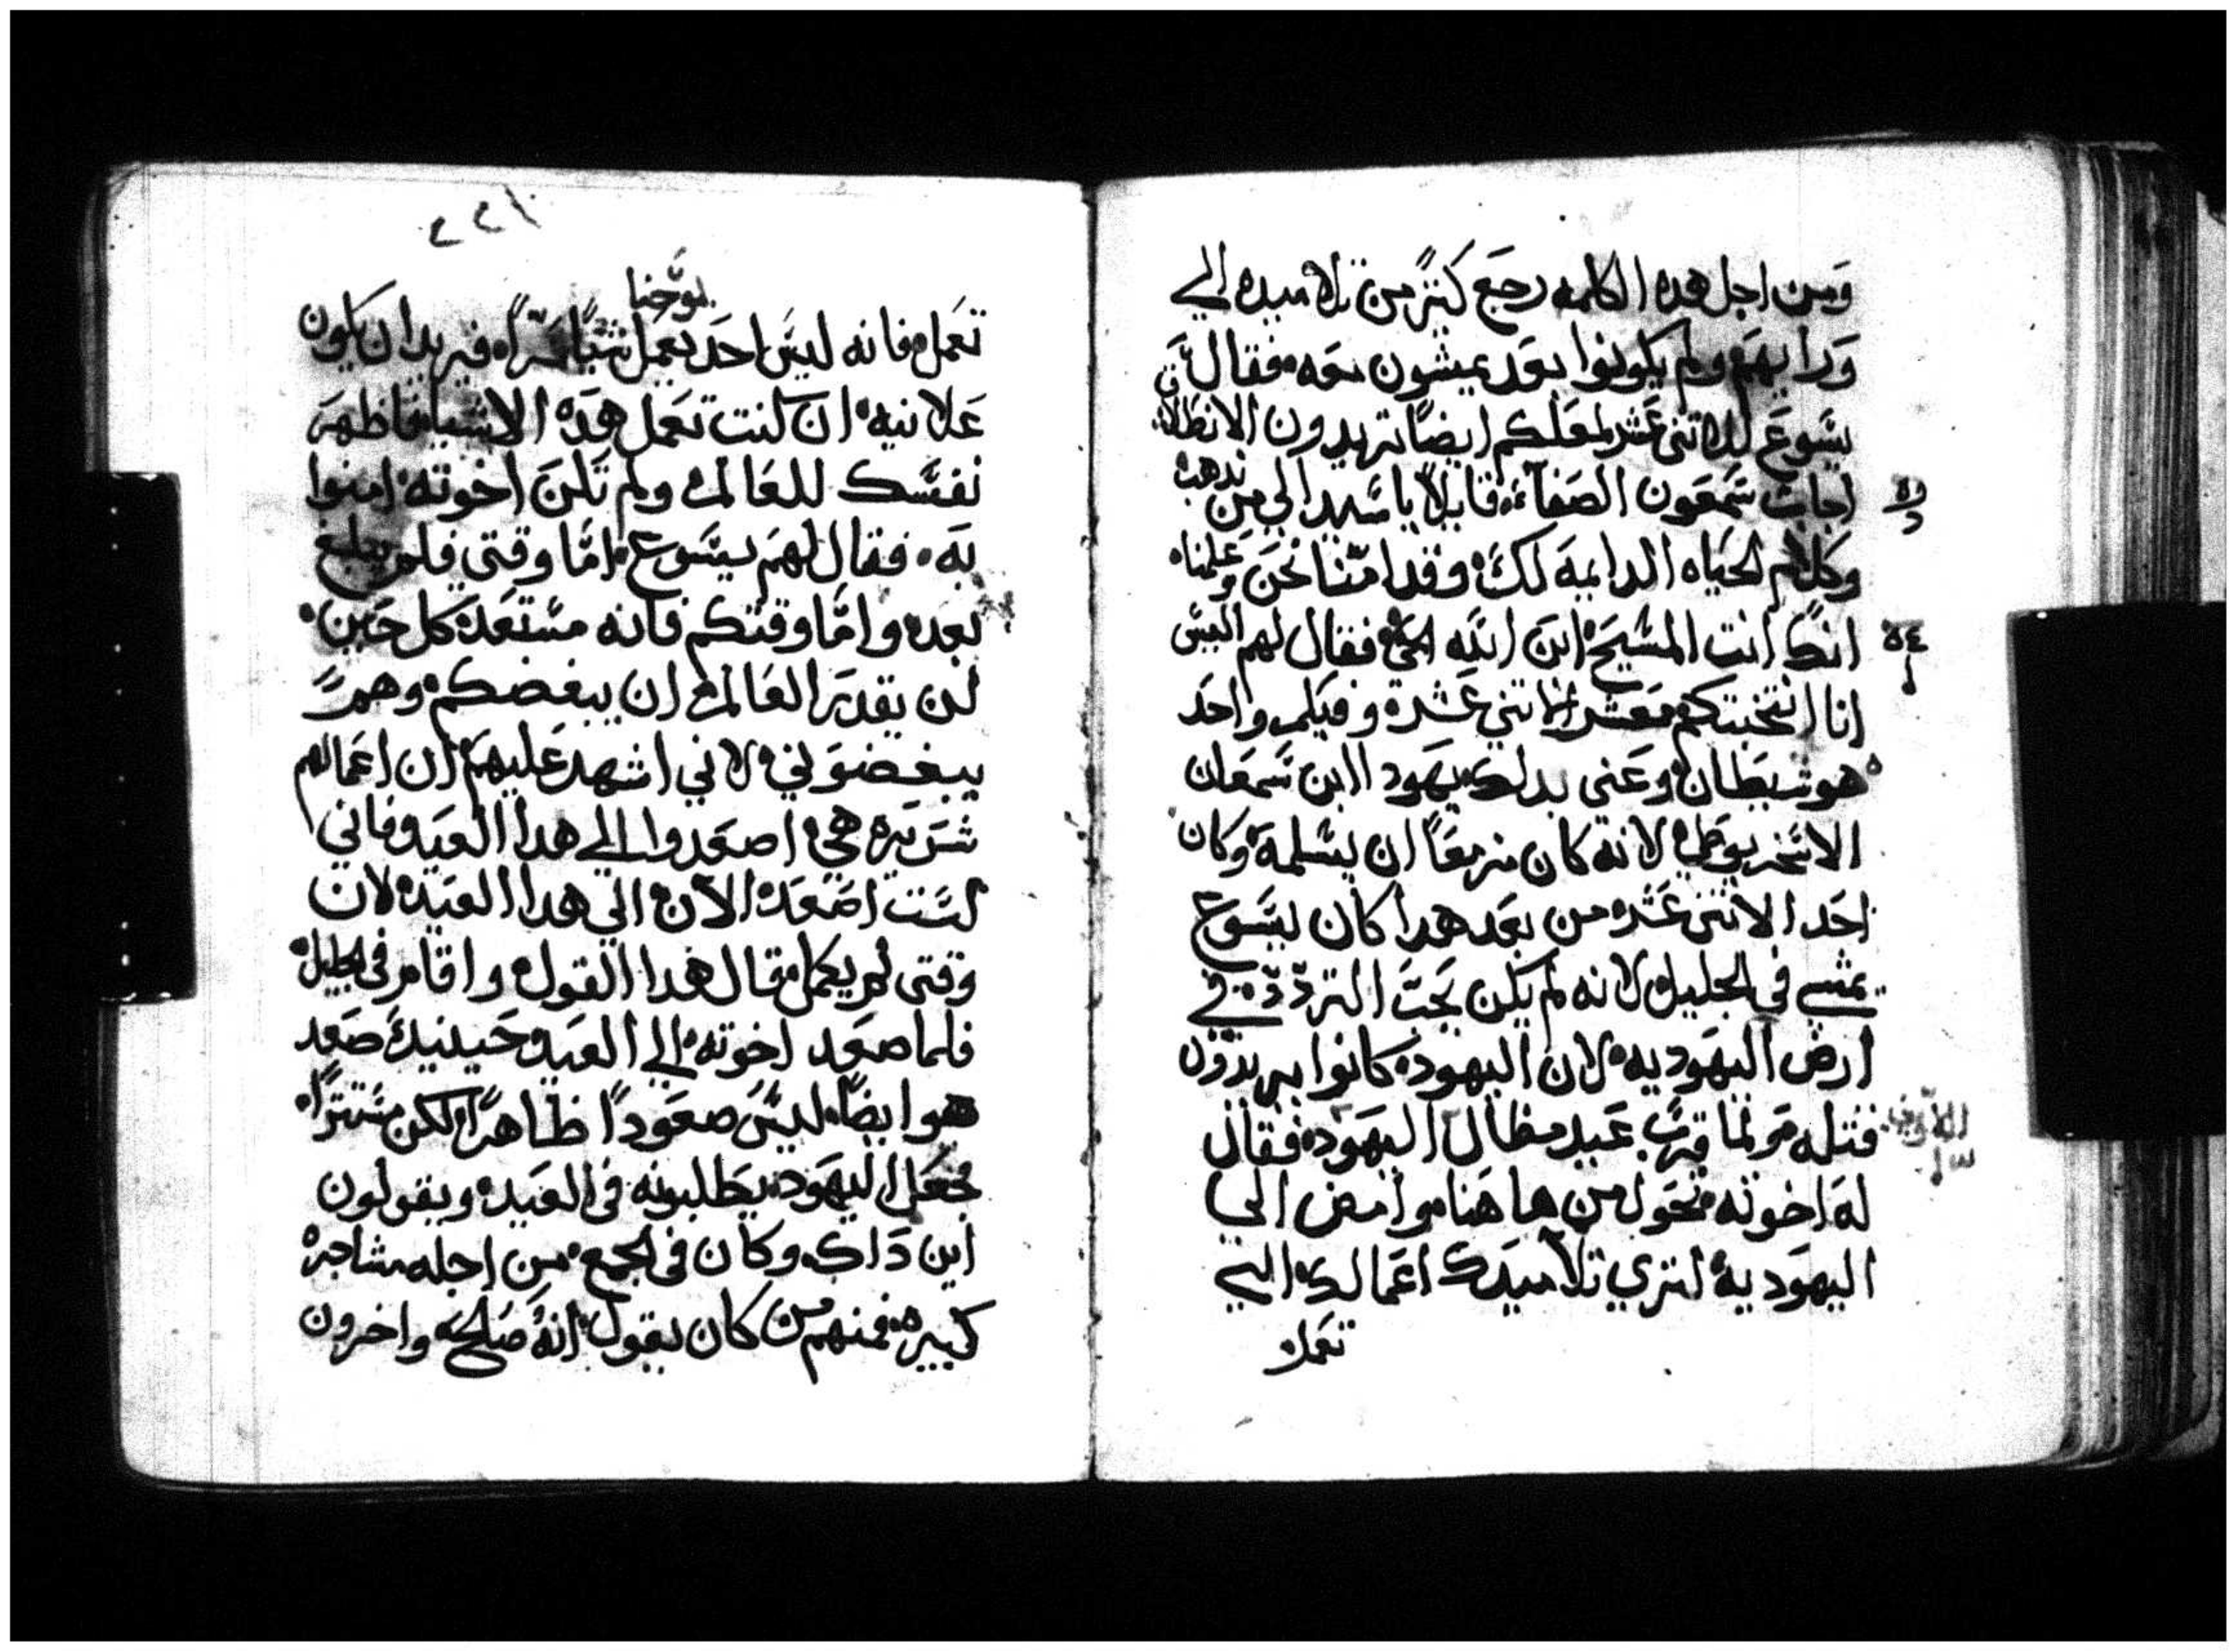 ومن اجل هده الكلمه رجع كتير من تلاميده الي
ورايهم ولم يكونوا بعد يمشون معه فقال
يسوع للاتني عشر لعلكم ايضًا تريدون الانطلاق
اجاب سمعون الصفا قايلاً يا سيد الي من ندهب
وكلام الحياه الدايمه لك وقد امنّا نحن وعلمنا
انك انت المسيح ابن الله الحي فقال لهم اليس
انا انتخبتكم معشر الاتني عشره وفيكم واحد
هو شيطان وعني بدلك يهودا ابن سمعان
الاسخريوطي لانه كان مزمعًا ان يسلمه وكان
احد الاتني عشره من بعد هدا كان يسوع
يمشي في الجليل لانه لم يكن يحب التردّد في
ارض اليهوديه لان اليهود كانوا يريدون
قتله ولما قرب عيد مظال اليهود فقال
له اخوته تحول من ها هنا وامض الي
اليهوديه لتري تلاميدك اعمالك التي
تعمل
٢٢١
يوحنا
تعمل فانه ليس احد يعمل شيًا سرًا فيريد ان يكون
علانيه ان كنت تعمل هده الاشيا فاظهر
نفسك للعالم ولم تكن اخوته امنوا
به فقال لهم يسوع امّا وقتي فلم يبلغ
بعد وامّا وقتكم فانه مستعد كل حين
لن يقدر العالم ان يبغضكم وهو
يبغضوني لاني اشهد عليهم ان اعمالهم
شريره هي اصعدوا الي هدا العيد فاني
لست اصعد الان الي هدا العيد لان
وقتي لم يكمل قال هدا القول واقام في الجليل
فلما صعد اخوته الي العيد حينيد صعد
هو ايضًا ليس صعودًا ظاهرًا لكن مستترًا
فجعل اليهود يطلبونه في العيد ويقولون
اين داك وكان في الجمع من اجله مشاجره
كبيره فمنهم من كان يقول انه صالح واخرون